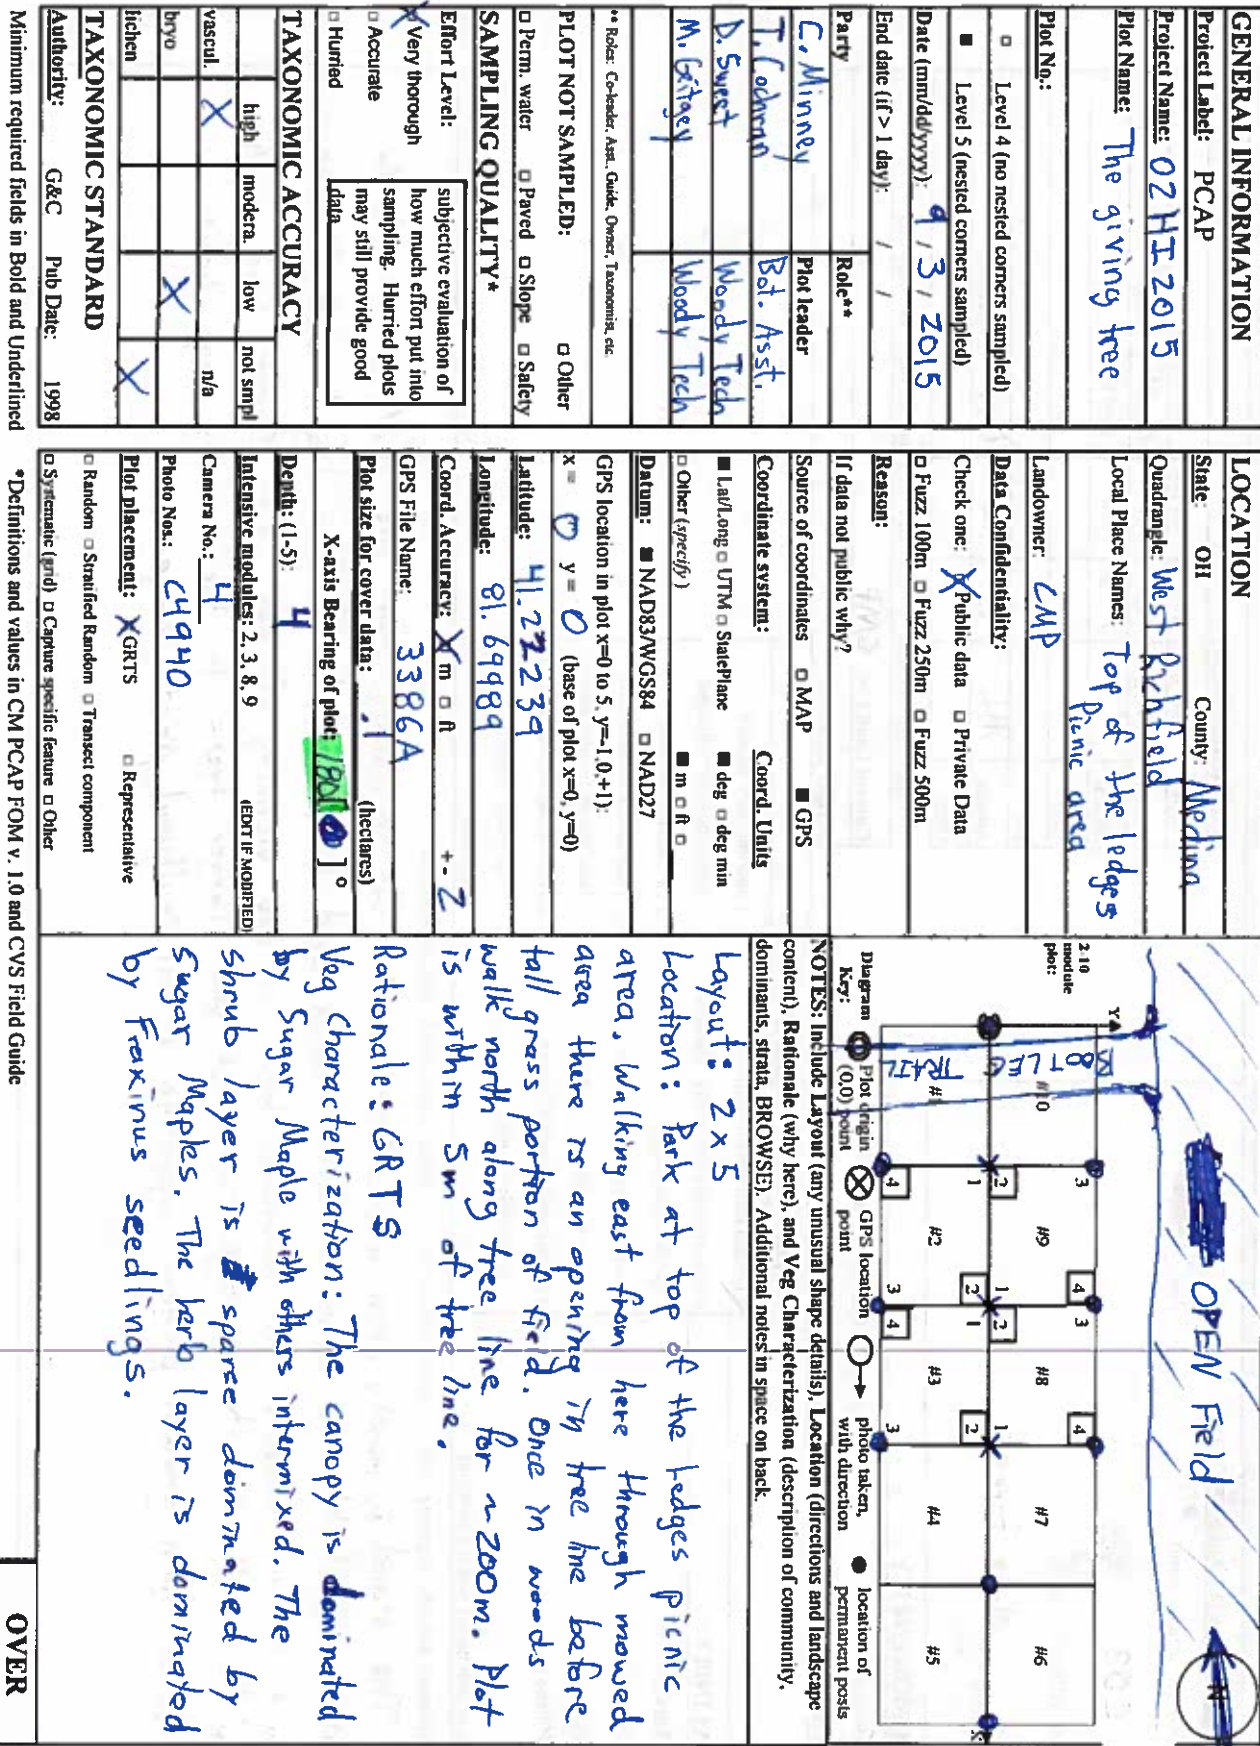 GENERAL INFORMATION
Project Label: PCAP
Project Name: 02HI2015
Plot Name: The giving tree
Plot No.:
□ Level 4 (no nested corners sampled)
■ Level 5 (nested corners sampled)
Date (mm/dd/yyyy): 9 / 3 / 2015
End date (if > 1 day): / /
Party Role**
C. Minney Plot leader
T. Cochran Bot. Asst.
D. Sweet Woody Tech
M. Woody Tech
** Roles: Co-leader, Asst., Guide, Owner, Taxonomist, etc.
PLOT NOT SAMPLED: □ Other
□ Perm. water □ Paved □ Slope □ Safety
SAMPLING QUALITY*
Effort Level:
X Very thorough
□ Accurate
□ Hurried
subjective evaluation of
how much effort put into
sampling. Hurried plots
may still provide good
data
TAXONOMIC ACCURACY
high modera. low not smpl
vascul. X n/a
bryo X
lichen X
TAXONOMIC STANDARD
Authority: G&C Pub Date: 1998
Minimum required fields in Bold and Underlined
LOCATION
State: OH County: Medina
Quadrangle: West Richfield
Local Place Names: Top of the ledges
Picnic area
Landowner: CMP
Data Confidentiality:
Check one: X Public data □ Private Data
□ Fuzz 100m □ Fuzz 250m □ Fuzz 500m
Reason:
If data not public why?
Source of coordinates □ MAP ■ GPS
Coordinate system: Coord. Units
■ Lat/Long □ UTM □ StatePlane ■ deg □ deg min
□ Other (specify) ■ m □ ft □
Datum: ■ NAD83/WGS84 □ NAD27
GPS location in plot x=0 to 5, y=-1,0,+1):
x = 0 y = 0 (base of plot x=0, y=0)
Latitude: 41.22239
Longitude: 81.69989
Coord. Accuracy: X m □ ft +- 2
GPS File Name: 3386A
Plot size for cover data: .1 (hectares)
X-axis Bearing of plot: 180 [ ] °
Depth: (1-5): 4
Intensive modules: 2, 3, 8, 9 (EDIT IF MODIFIED)
Camera No.: 4
Photo Nos.: C4940
Plot placement: X GRTS □ Representative
□ Random □ Stratified Random □ Transect component
□ Systematic (grid) □ Capture specific feature □ Other
*Definitions and values in CM PCAP FOM v. 1.0 and CVS Field Guide
OPEN Field
N
2-10
module
plot:
Y
BOOTLEG
TRAIL
#10 #9 #8 #7 #6
#1 #2 #3 #4 #5
3 4 3 4
2 1 2 1
1 2 1 2
4 3 4 3
X
Diagram Key: Plot origin (0,0) point GPS location point photo taken, with direction location of permanent posts
NOTES: Include Layout (any unusual shape details), Location (directions and landscape
content), Rationale (why here), and Veg Characterization (description of community,
dominants, strata, BROWSE). Additional notes in space on back.
Layout: 2 x 5
Location: Park at top of the Ledges picnic
area. Walking east from here through mowed
area there is an opening in tree line before
tall grass portion of field. Once in woods
walk north along tree line for ~200m. Plot
is within 5m of tree line.
Rationale: GRTS
Veg Characterization: The canopy is dominated
by Sugar Maple with others intermixed. The
shrub layer is sparse dominated by
Sugar Maples. The herb layer is dominated
by Fraxinus seedlings.
OVER